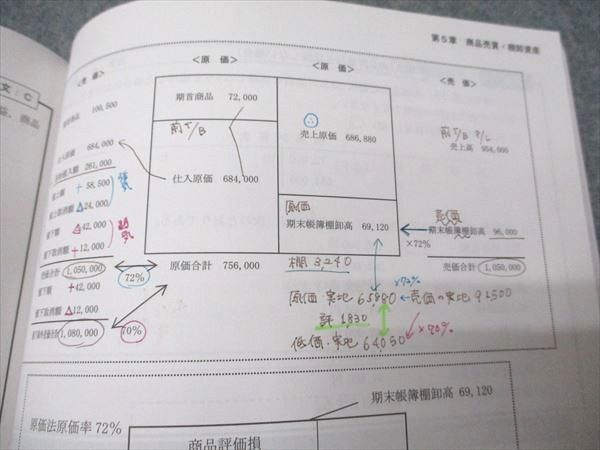 第5章 商品売買・棚卸資産
文:C
益、商品
<売 価>
<原 価>
<原 価>
<売 価>
100,500
期首商品 72,000
前T/B
仕入原価 684,000
∴
売上原価 686,880
前T/B P/L
売上高 954,000
仕入原価 684,000
261,000
+ 58,500
△24,000
△42,000
+ 12,000
1,050,000
+42,000
△12,000
1,080,000
原価
期末帳簿棚卸高 69,120
売価
期末帳簿棚卸高 96,000
×72%
72%
原価合計 756,000
売価合計 1,050,000
棚 3,240
×72%
原価・実地 65880 ← 売価の実地 91500
評 1830
低価・実地 64050
×70%
70%
期末帳簿棚卸高 69,120
原価法原価率 72%
商品評価損